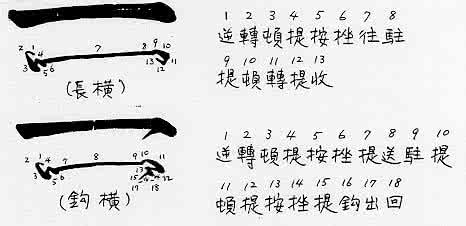 1 2 3 4 5 6 7 8
逆轉頓提按挫往駐
9 10 11 12 13
提頓轉提收
2 1 4 7 8 9 10
3 5 6 13 12 11
(長橫)
1 2 3 4 5 6 7 8 9 10
逆轉頓提按挫提送駐提
11 12 13 14 15 16 17 18
頓提按挫提鈎出回
2 1 4 7 8 9 10
3 5 6 13 11 12
15 14
16 17 18
(鈎橫)